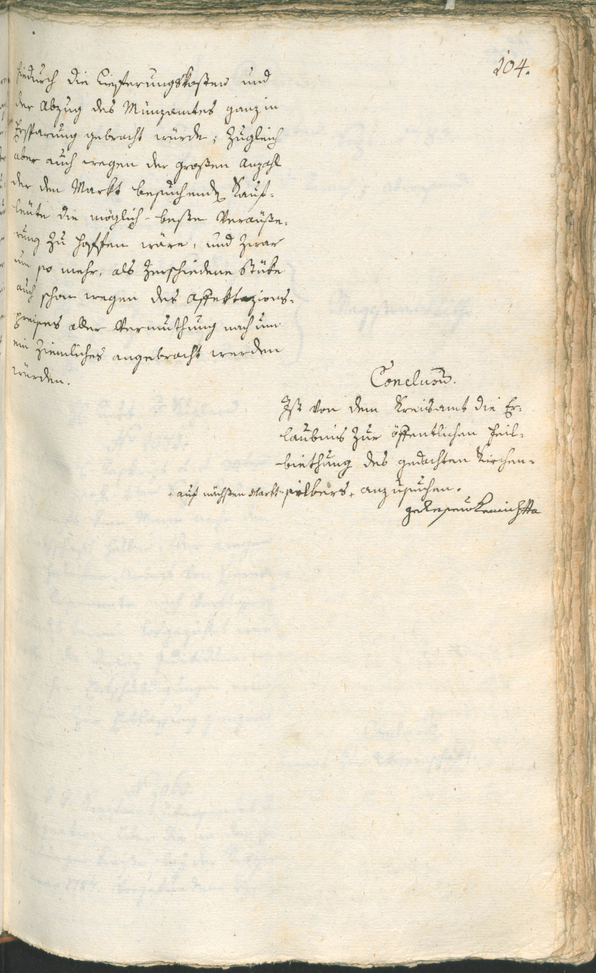 104.
hiedurch die Lieferungskosten und
der Abzug des Münzamtes ganz in
Ersparung gebracht würde; zugleich
aber auch wegen der großen Anzahl
der den Markt besuchenden Kauf-
leute die möglich-beste Veräuße-
rung zu hoffen wäre, und zwar
um so mehr, als verschiedene Stüke
auch schon wegen des Affektazions-
preises aller Vermuthung nach um
ein ziemliches angebracht werden
würden.
Conclusum.
Ist von dem Kreisamt die Er-
laubnis zur öffentlichen Feil-
biethung des gedachten Kirchen-
auf nächsten Markt silbers anzusuchen.